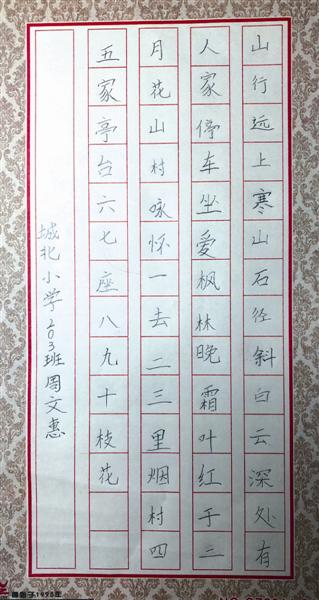 山行远上寒山石径斜白云深处有
人家停车坐爱枫林晚霜叶红于二
月花山村咏怀一去二三里烟村四
五家亭台六七座八九十枝花
城北小学203班周文惠